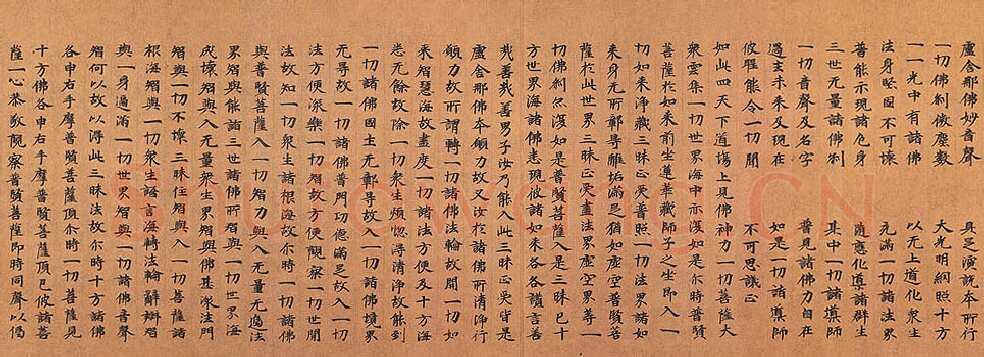 盧舍那佛妙音聲　具足演說本所行
一切佛剎微塵數　大光明網照十方
一一光中有諸佛　以无上道化衆生
法身堅固不可壞　充滿一切諸法界
普能示現諸色身　隨意化導諸群生
三世无量諸佛剎　其中一切諸導師
一切音聲及名字　普見諸佛力自在
過去未来及現在　如是一切諸導師
彼雖能令一切聞　不可思議正
如此四天下道場上見佛神力一切菩薩大
衆雲集一切世界海中亦復如是尒時普賢
菩薩於如来前坐蓮華藏師子之坐即入一
切如来淨藏三昧正受普照一切法界諸如
来身无所鄣导離垢滿足猶如虛空普賢菩
薩於此世界三昧正受盡法界虛空界等一
切佛剎忽然復如是普賢菩薩入是三昧已十
方世界海諸佛悉現彼諸如来各各讚言善
哉善哉善男子汝乃能入此三昧正受皆是
盧舍那佛本願力故又汝於諸佛所清淨行
願力故所謂轉一切諸佛法輪故開一切如
来智慧海故盡度一切諸法方便及十方海
悉无餘故除一切衆生煩惱得清淨故能到
一切諸佛國土无鄣导故入一切諸佛境界
无导故一切諸佛普門功德滿足故入一切
法方便深樂一切智故方便觀察一切世間
法故知一切衆生諸根海故尒時一切諸佛
與普賢菩薩入一切智力與入无量无邊法
界智與能詣三世諸佛所智與一切世界海
成壞智與入无量衆生界智與佛甚深法門
智與一切不壞三昧住智與入一切菩薩諸
根海智與一切衆生語言海轉法輪辭辯智
與一身遍滿一切世界智與一切諸佛音聲
智何以故以得此三昧法故尒時十方諸佛
各申右手摩普賢菩薩頂尒時一切菩薩見
十方佛各申右手摩普賢菩薩頂已彼諸菩
薩一心恭敬觀察普賢菩薩即時同聲以偈